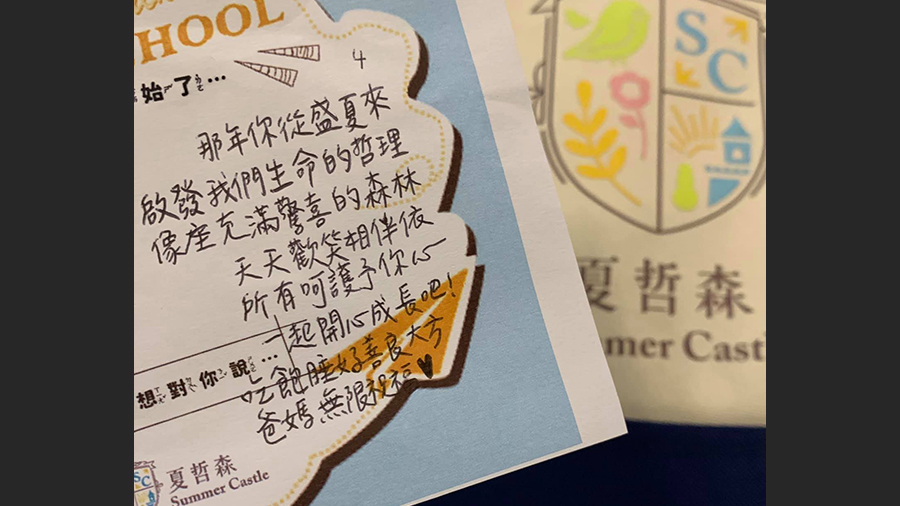 HOOL
4
始了...
那年你從盛夏來
啟發我們生命的哲理
像座充滿驚喜的森林
天天歡笑相伴依
所有呵護予你心
一起開心成長吧!
想對你說...
吃飽睡好善良大方
爸媽無限祝福♥
SC
夏哲森
Summer Castle
SC
夏哲森
mer Cast